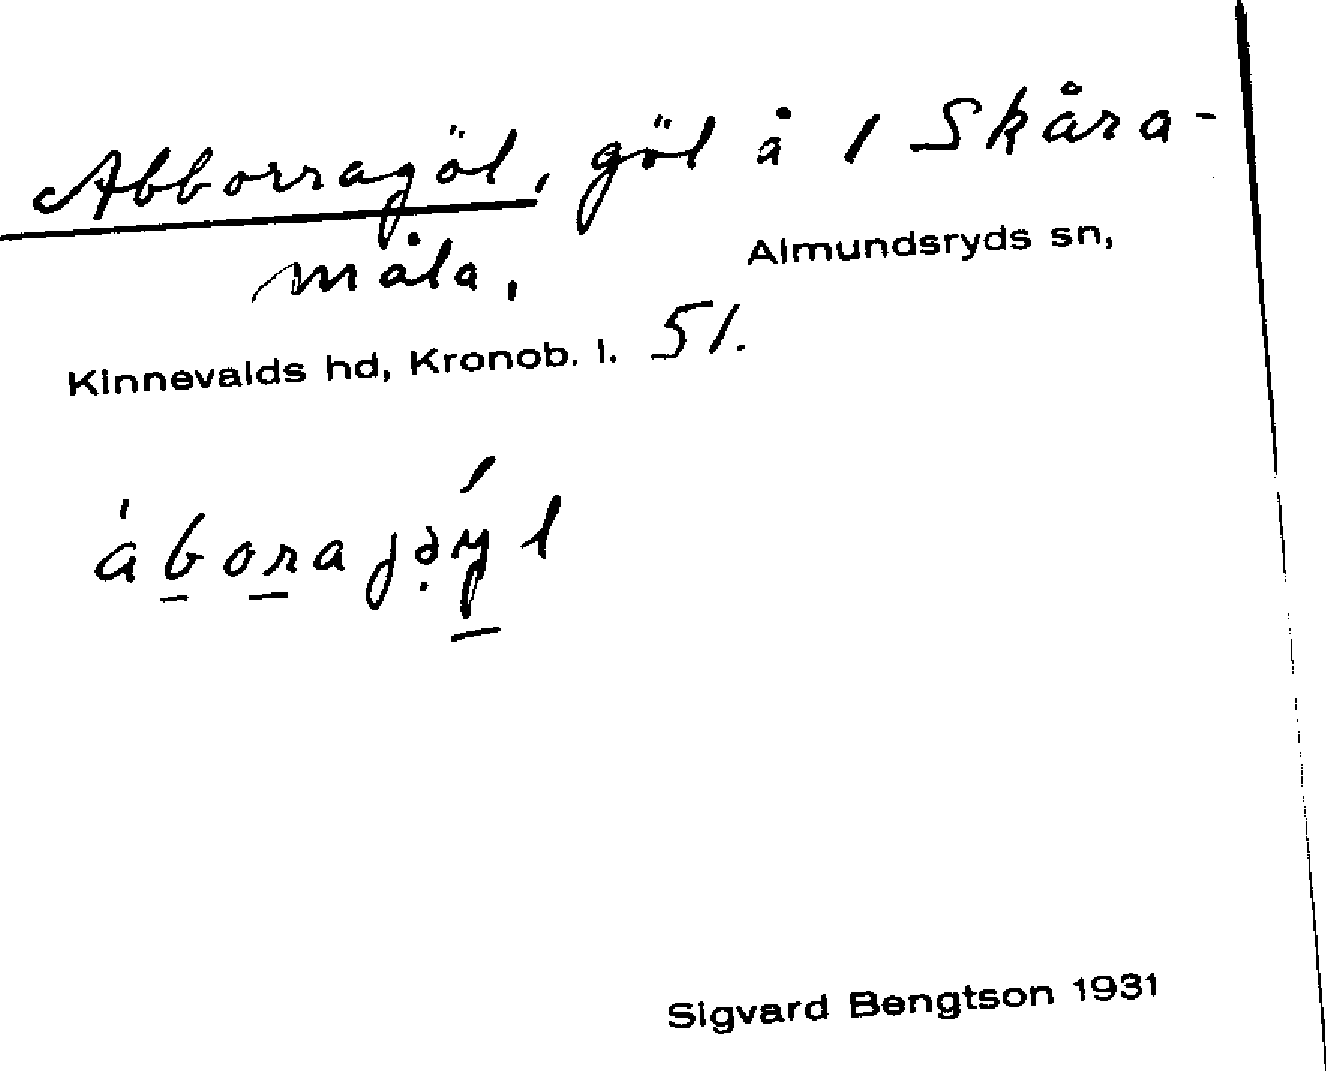 Abborragöl, göl å 1 Skåra-
måla, Almundsryds sn,
Kinnevalds hd, Kronob. l. 51.
Sigvard Bengtson 1931